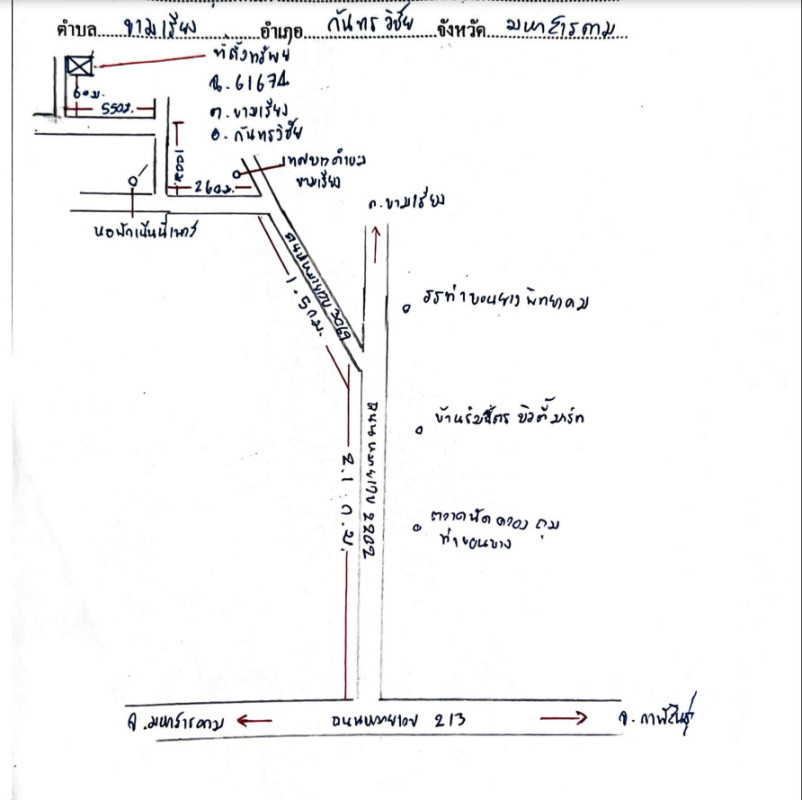 ตำบล ขามเรียง อำเภอ กันทรวิชัย จังหวัด มหาสารคาม
ที่ตั้งทรัพย์
60ม.
ฉ. 61674
550ม.
ต. ขามเรียง
อ. กันทรวิชัย
100ม.
เทศบาลตำบล
ขามเรียง
260ม.
ต. ขามเรียง
หอพัก
1.5 กม.
3069
รร ท่าขอนยาง พิทยาคม
บ้าน
2.1 ก.ม.
ถนนหมายเลข 2202
ตลาดนัด คลองถม
ท่าขอนยาง
จ. มหาสารคาม
ถนนหมายเลข 213
จ. กาฬสินธุ์